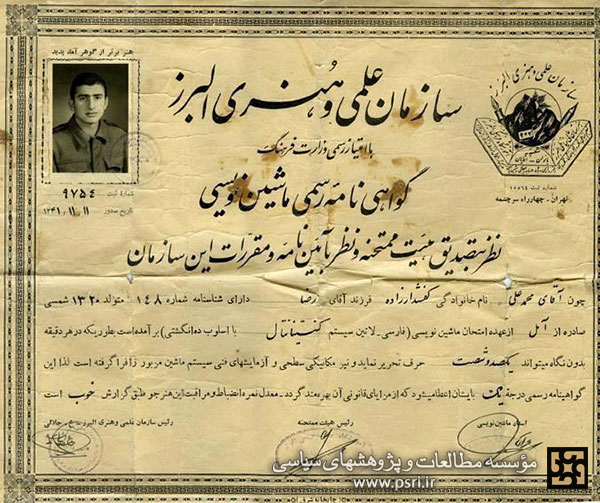 هنر برتر از گوهر آمد پدید
سازمان علمی و هنری البرز
با امتیاز رسمی وزارت فرهنگ
گواهی نامه رسمی ماشین نویسی
سازمان علمی و هنری البرز
شماره ثبت
تهران - چهارراه سرچشمه
شماره ثبت ۹۷۵۴
تاریخ صدور ۱۳۴۱/۱۱/۱۱
نظر بتصدیق هیئت ممتحنه و نظر بآئین نامه و مقررات این سازمان
چون آقای محمدعلی نام خانوادگی کفشدارزاده فرزند آقای رضا دارای شناسنامه شماره ۱۴۸ متولد ۱۳۲۰ شمسی
صادره از آمل از عهده امتحان ماشین نویسی (فارسی - لاتین سیستم کنتیناتال با اسلوب ده انگشتی) برآمده است بطوریکه در هر دقیقه
بدون نگاه میتواند یکصد و شصت حرف تحریر نماید و نیز مکانیکی سطحی و آزمایشهای فنی سیستم ماشین مزبور را فرا گرفته است لذا این
گواهینامه رسمی درجه یک بایشان اعطا میشود که از مزایای قانونی آن بهره مند گردد - معدل نمره انضباط و مراقبت این هنرجو طبق گزارش خوب است
استاد ماشین نویسی
رئیس هیئت ممتحنه
رئیس سازمان علمی و هنری البرز - ع - جلالی
مؤسسه مطالعات و پژوهشهای سیاسی
www.psri.ir